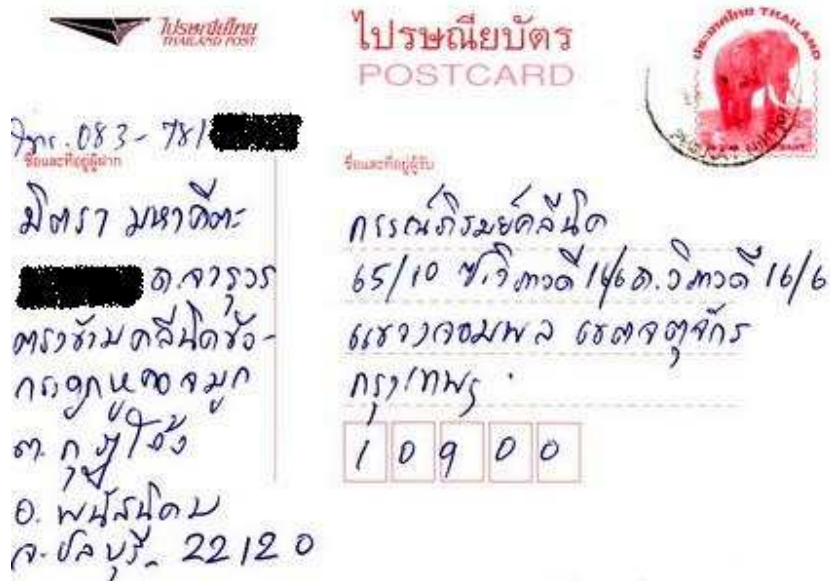 ไปรษณีย์ไทย
THAILAND POST
ไปรษณียบัตร
POSTCARD
ประเทศไทย THAILAND
โทร. 083-781
ชื่อและที่อยู่ผู้ฝาก
มิตรา มหาคีตะ
ถ.จารุวร
ตรงข้ามคลีนิคข้อ-
กระดูกหูคอจมูก
ต. กุฎโง้ง
อ. พนัสนิคม
จ. ชลบุรี. 22120
ชื่อและที่อยู่ผู้รับ
กรรณภิรมย์คลีนิค
65/10 ซ.วิภาวดี 16/6 ถ.วิภาวดี 16/6
แขวงจอมพล เขตจตุจักร
กรุงเทพฯ
10900